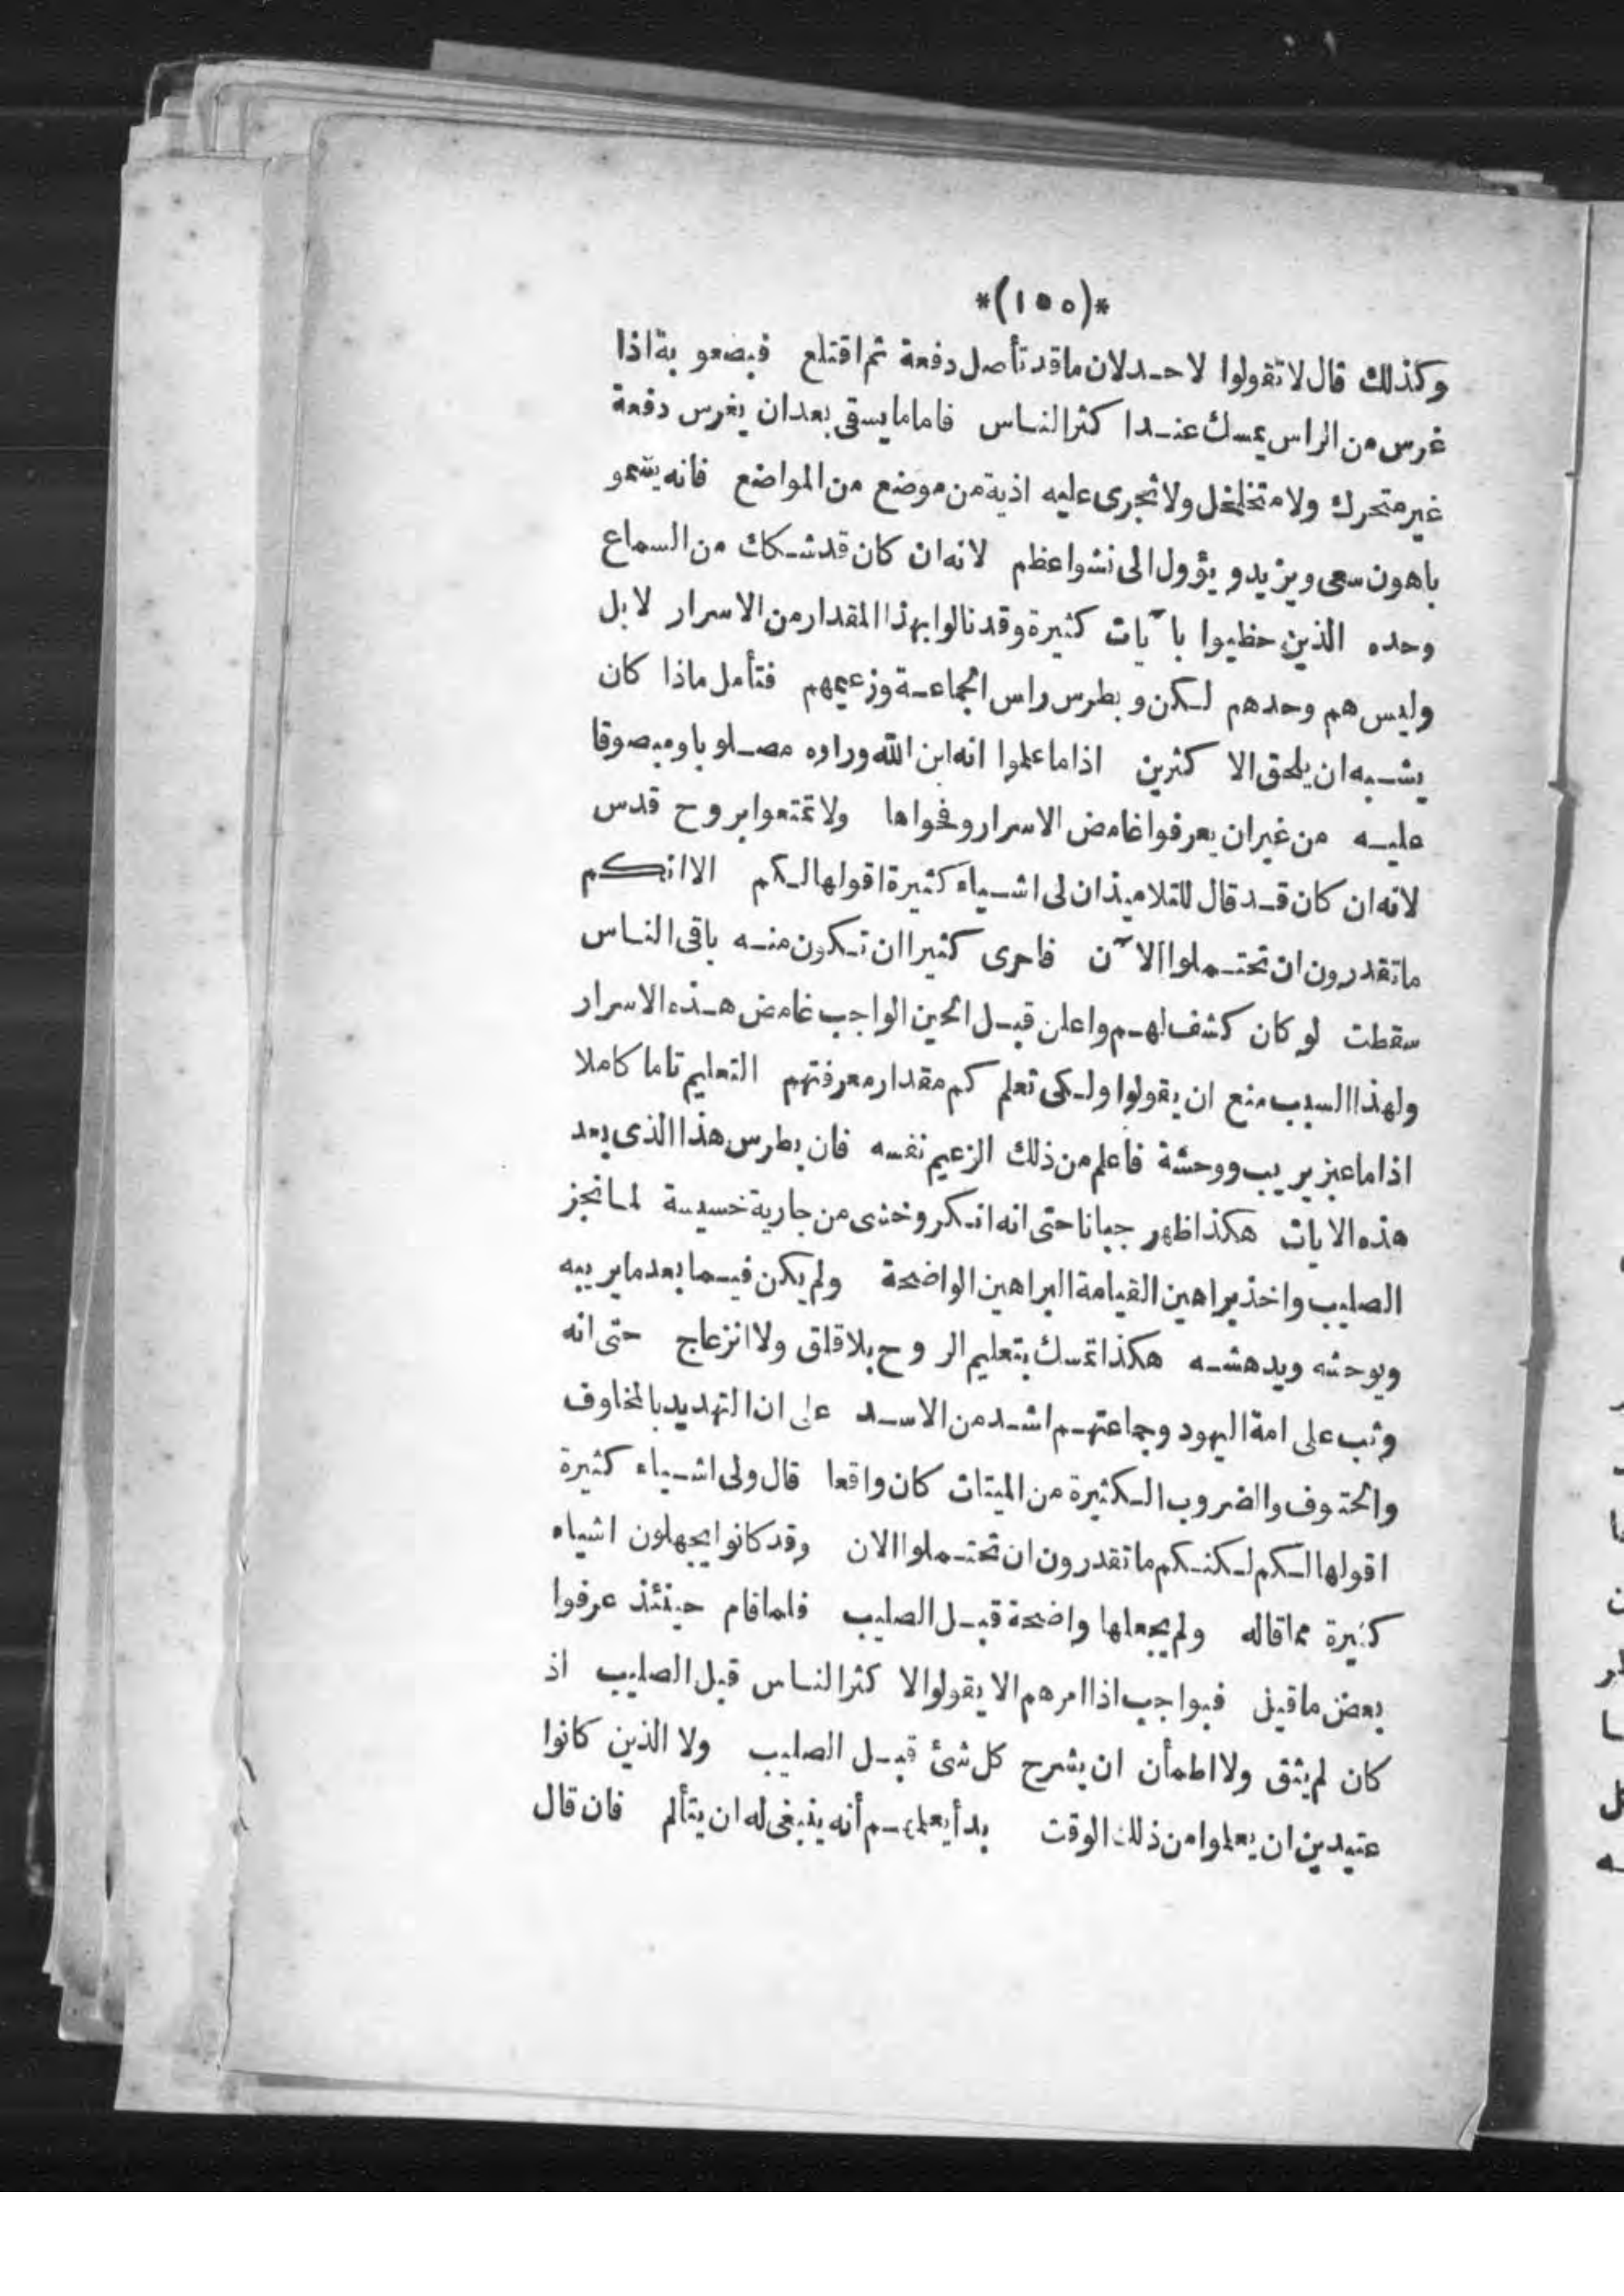 *(١٥٥)*
وكذلك قال لا تقولوا لاحد لان ما قد تأصل دفعة ثم اقتلع فبصعوبة اذا
غرس من الراس يمسك عند اكثر الناس فاما ما يسقى بعد ان يغرس دفعة
غير متحرك ولا متخلخل ولا تجرى عليه اذية من موضع من المواضع فانه ينمو
باهون سعى ويزيد ويؤول الى نشوا عظم لانه ان كان قد شكك من السماع
وحده الذين حظيوا بآيات كثيرة وقد نالوا بهذا المقدار من الاسرار لا بل
وليس هم وحدهم لكن وبطرس راس الجماعة وزعيمهم فتأمل ماذا كان
يشبه ان يلحق الاكثرين اذا ما علموا انه ابن الله وراوه مصلوبا ومبصوقا
عليه من غير ان يعرفوا غامض الاسرار وفحواها ولا تمتعوا بروح قدس
لانه ان كان قد قال للتلاميذ ان لى اشياء كثيرة اقولها لكم الا انكم
ما تقدرون ان تحتملوا الآن فاحرى كثيرا ان تكون منه باقى الناس
سقطت لو كان كشف لهم واعلن قبل الحين الواجب غامض هذه الاسرار
ولهذا السبب منع ان يقولوا ولكى تعلم كم مقدار معرفتهم التعليم تاما كاملا
اذا ما عبز يريب ووحشة فاعلم من ذلك الزعيم نفسه فان بطرس هذا الذى بعد
هذه الايات هكذا ظهر جبانا حتى انه انكر وخشى من جارية خسيسة لما نجز
الصليب واخذ براهين القيامة البراهين الواضحة ولم يكن فيما بعد ما يريبه
ويوحشه ويدهشه هكذا تمسك بتعليم الروح بلا قلق ولا انزعاج حتى انه
وثب على امة اليهود وجماعتهم اشد من الاسد على ان التهديد بالمخاوف
والحتوف والضروب الكثيرة من الميتات كان واقعا قال ولى اشياء كثيرة
اقولها لكم لكنكم ما تقدرون ان تحتملوا الان وقد كانوا يجهلون اشياء
كثيرة مما قاله ولم يجعلها واضحة قبل الصليب فلما قام حينئذ عرفوا
بعض ما قيل فبواجب اذا امرهم الا يقولوا لاكثر الناس قبل الصليب اذ
كان لم يثق ولا اطمأن ان يشرح كل شئ قبل الصليب ولا الذين كانوا
عتيدين ان يعلموا من ذلك الوقت بدأ يعلمهم أنه ينبغى له ان يتألم فان قال